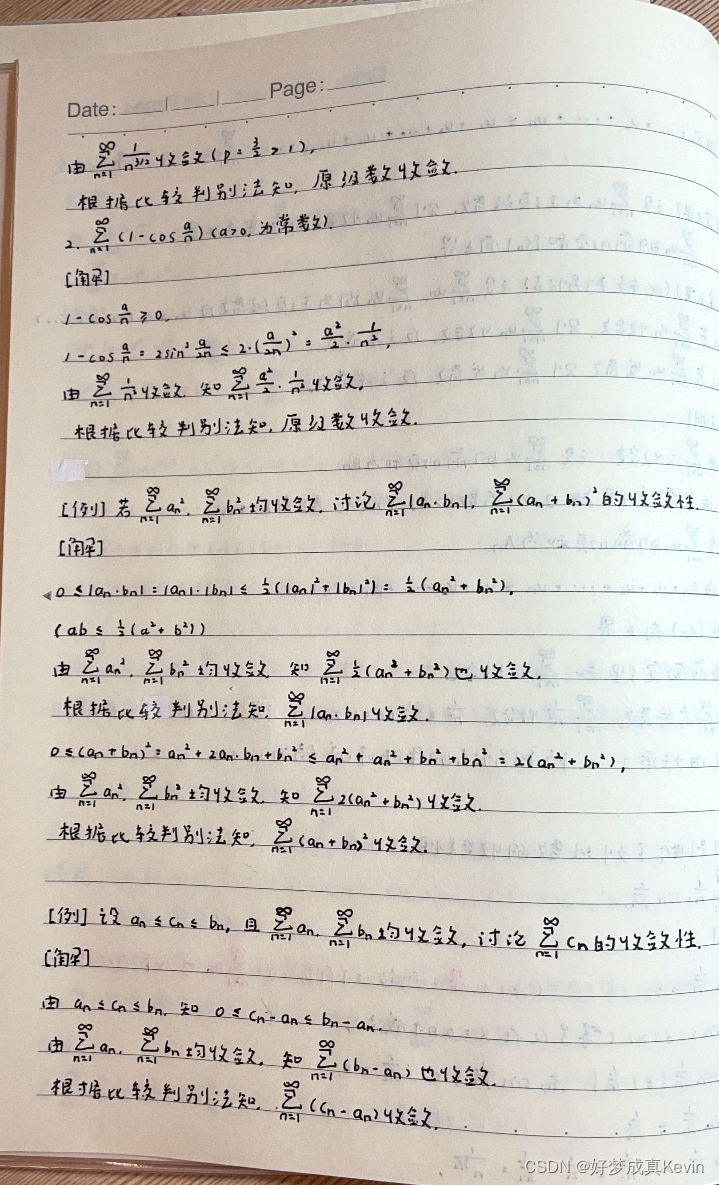 Date: Page:
由 ∑_{n=1}^{∞} 1/n^{3/2} 收敛 (p = 3/2 > 1),
根据比较判别法知, 原级数收敛.
2. ∑_{n=1}^{∞} (1 - cos a/n) (a>0, 为常数).
[解]
1 - cos a/n ≥ 0,
1 - cos a/n = 2sin² a/2n ≤ 2·(a/2n)² = a²/2 · 1/n²,
由 ∑_{n=1}^{∞} 1/n² 收敛, 知 ∑_{n=1}^{∞} a²/2 · 1/n² 收敛,
根据比较判别法知, 原级数收敛.
[例] 若 ∑_{n=1}^{∞} an², ∑_{n=1}^{∞} bn² 均收敛, 讨论 ∑_{n=1}^{∞} |an·bn|, ∑_{n=1}^{∞} (an+bn)² 的收敛性.
[解]
0 ≤ |an·bn| = |an|·|bn| ≤ 1/2(|an|²+|bn|²) = 1/2(an²+bn²),
(ab ≤ 1/2(a²+b²))
由 ∑_{n=1}^{∞} an², ∑_{n=1}^{∞} bn² 均收敛, 知 ∑_{n=1}^{∞} 1/2(an²+bn²) 也收敛,
根据比较判别法知, ∑_{n=1}^{∞} |an·bn| 收敛.
0 ≤ (an+bn)² = an² + 2an·bn + bn² ≤ an² + an² + bn² + bn² = 2(an²+bn²),
由 ∑_{n=1}^{∞} an², ∑_{n=1}^{∞} bn² 均收敛, 知 ∑_{n=1}^{∞} 2(an²+bn²) 收敛.
根据比较判别法知, ∑_{n=1}^{∞} (an+bn)² 收敛.
[例] 设 an ≤ cn ≤ bn, 且 ∑_{n=1}^{∞} an, ∑_{n=1}^{∞} bn 均收敛, 讨论 ∑_{n=1}^{∞} cn 的收敛性.
[解]
由 an ≤ cn ≤ bn, 知 0 ≤ cn - an ≤ bn - an.
由 ∑_{n=1}^{∞} an, ∑_{n=1}^{∞} bn 均收敛, 知 ∑_{n=1}^{∞} (bn - an) 也收敛.
根据比较判别法知, ∑_{n=1}^{∞} (cn - an) 收敛.
CSDN @好梦成真Kevin